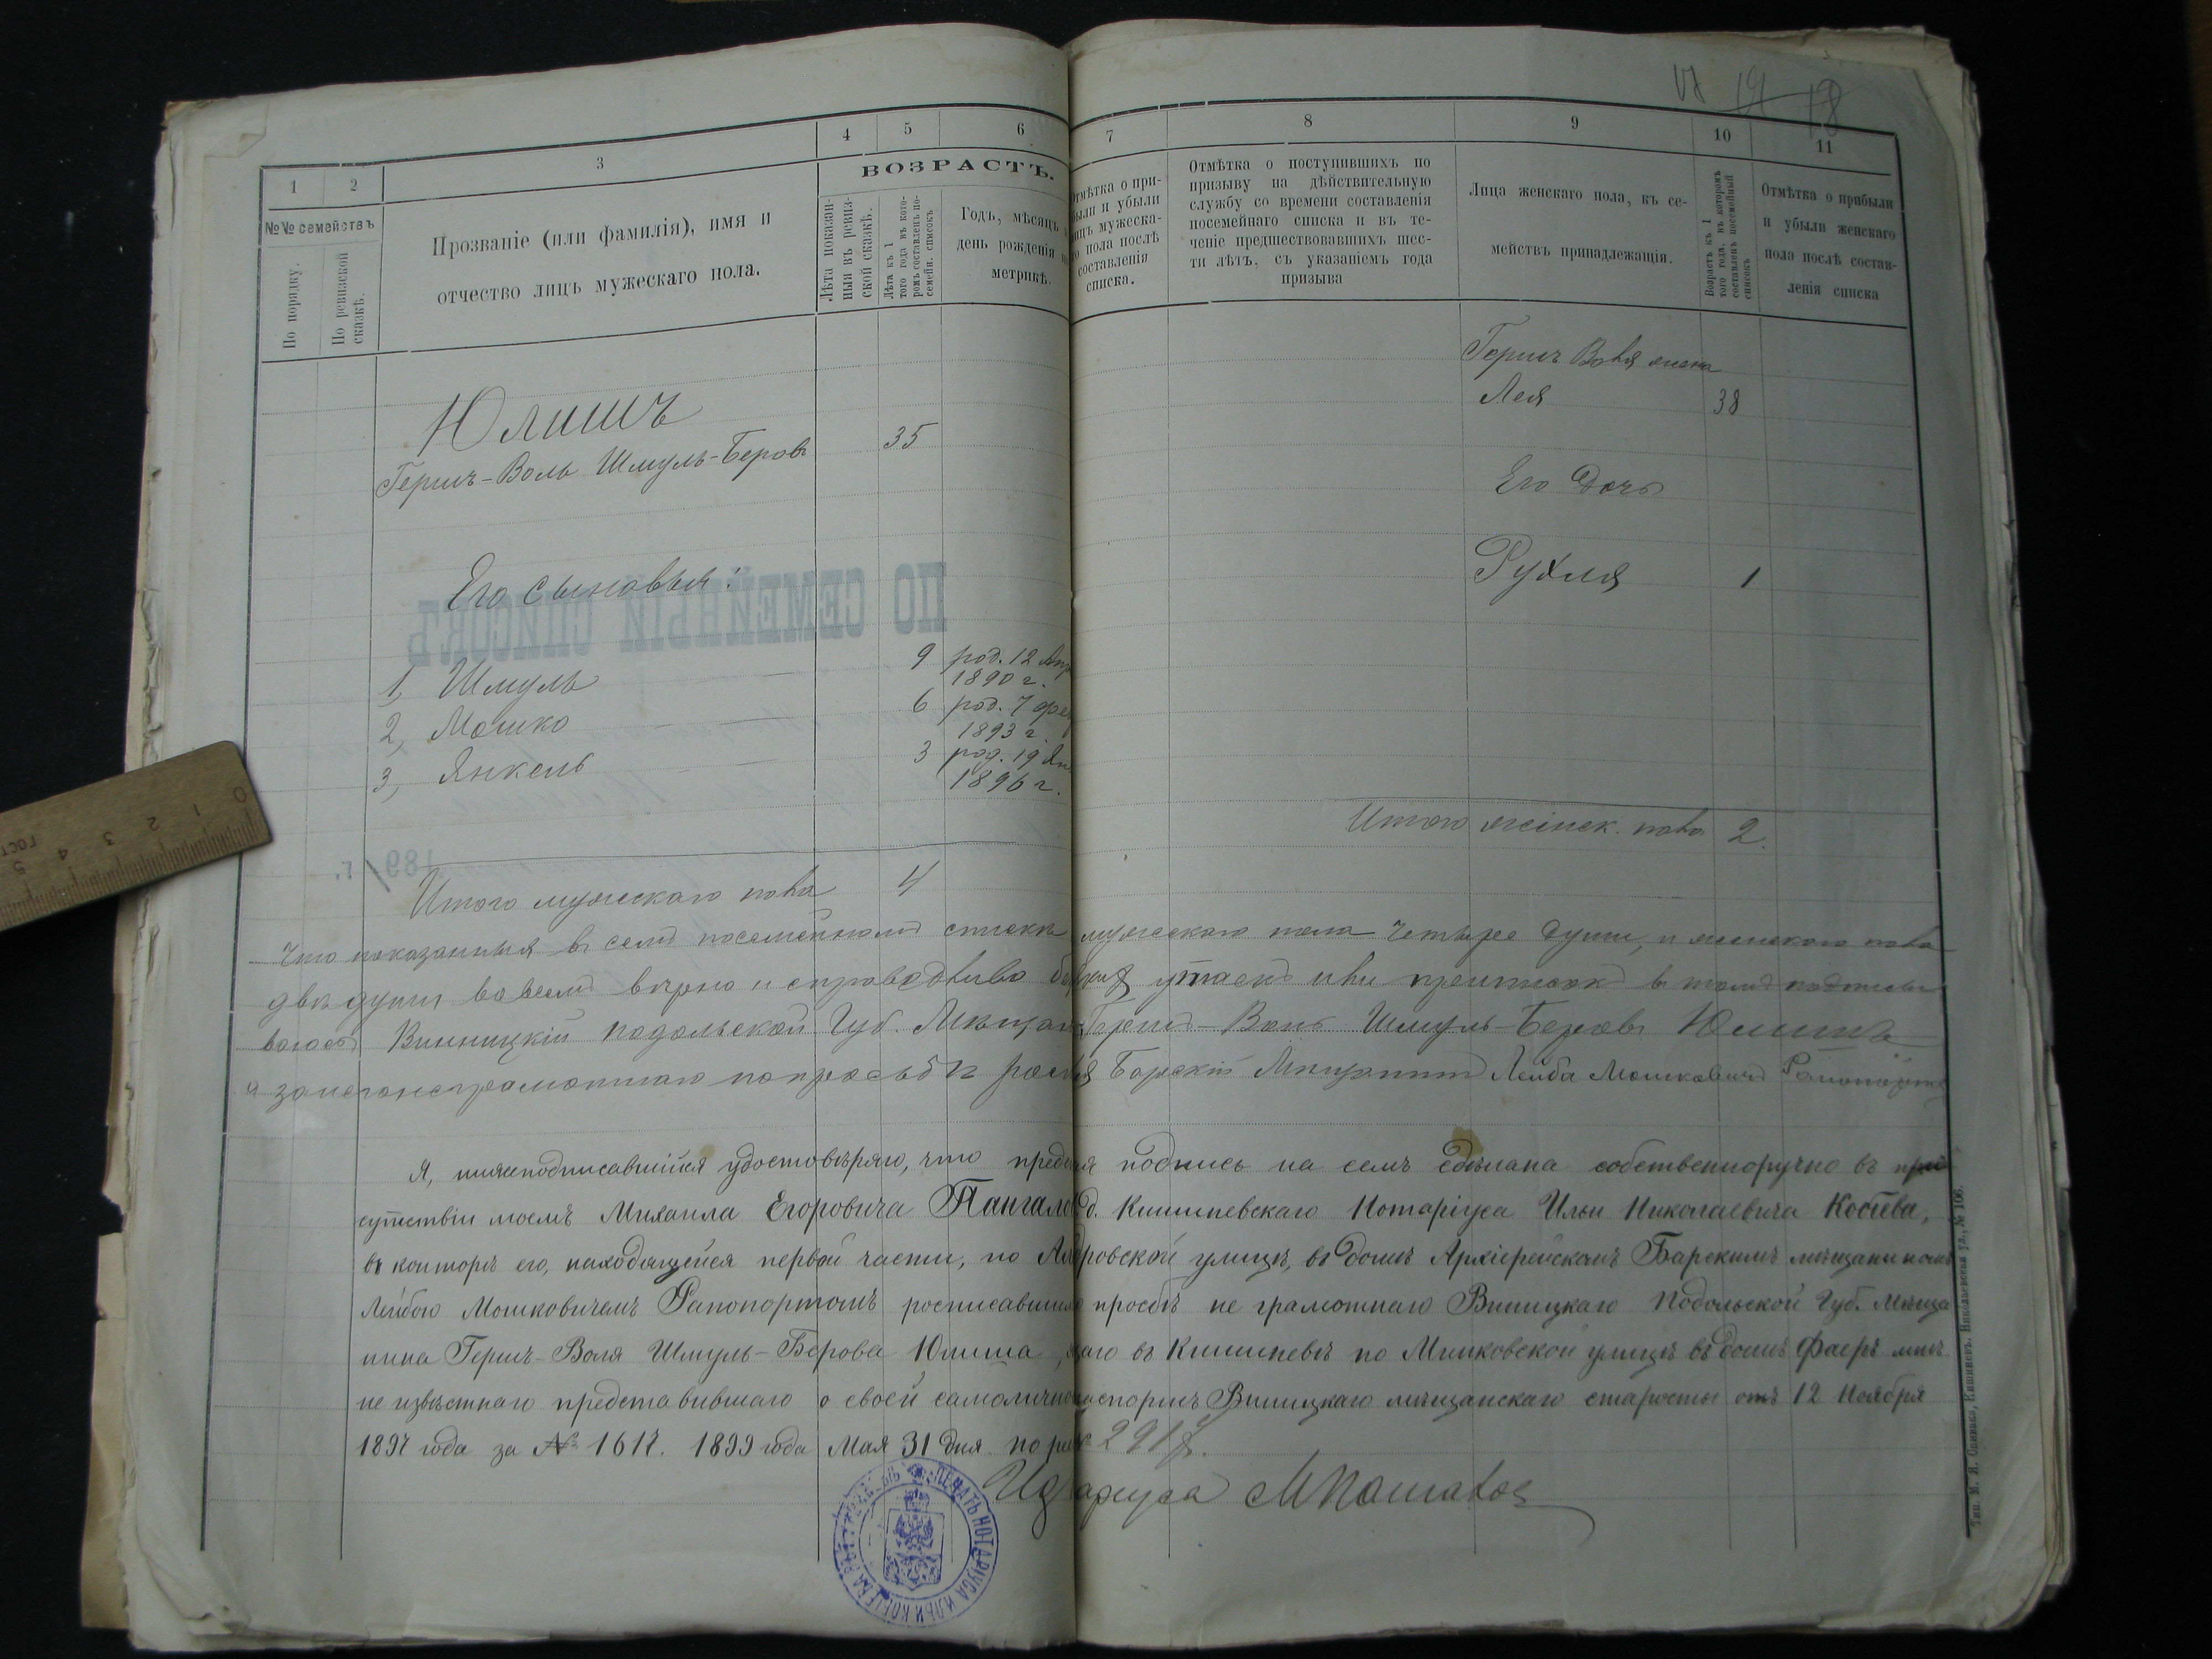 17 19 18
1 2 3 4 5 6 7 8 9 10 11
№№ семействъ
По порядку.
По ревизской сказкѣ.
Прозваніе (или фамилія), имя и
отчество лицъ мужескаго пола.
ВОЗРАСТЪ.
Лѣта показан-
ныя въ ревиз-
ской сказкѣ.
Лѣта къ 1
того года въ кото-
ромъ составленъ по-
семейн. списокъ
Годъ, мѣсяцъ
день рожденія
метрикѣ.
Отмѣтка о при-
были и убыли
лицъ мужеска-
го пола послѣ
составленія
списка.
Отмѣтка о поступившихъ по
призыву на дѣйствительную
службу со времени составленія
посемейнаго списка и въ те-
ченіе предшествовавшихъ шес-
ти лѣтъ, съ указаніемъ года
призыва
Лица женскаго пола, къ се-
мействъ принадлежащія.
Возрастъ къ 1
того года, въ которомъ
составленъ посемейный
списокъ
Отмѣтка о прибыли
и убыли женскаго
пола послѣ состав-
ленія списка
Юлишъ
Гершъ-Воль Шмуль-Беровъ 35
Его сыновья:
1, Шмуль 9 род. 12 Апр
1890 г.
2, Мошко 6 род. 7 фев
1893 г.
3, Янкель 3 род. 19 Ян
1896 г.
Итого мужескаго пола 4
Гершъ Воля жена
Лея 38
Его Дочь
Рухля 1
Итого женск. пола 2.
ПО СЕМЕЙНЫЙ СПИСОКЪ
189 г.
Что показанныя въ семъ посемейномъ спискѣ мужескаго пола четыре души, и женскаго пола
двѣ души во всемъ вѣрно и справедливо утаекъ или приписокъ въ томъ подписы
Винницкій Подольской Губ. Мѣщан Гершъ-Воль Шмуль-Беровъ Юлишъ
а за него неграмотнаго по просьбѣ Барскій Мѣщанинъ Лейба Мошковичъ Рапопортъ
Я, нижеподписавшійся удостовѣряю, что пред я подпись на семъ сдѣлана собственноручно въ при
сутствіи моемъ Михаила Егоровича Пангало д. Кишиневскаго Нотаріуса Ильи Николаевича Коѣева,
въ конторѣ его, находящейся первой части, по ровской улицѣ, въ домѣ Архіерейскомъ Барскимъ мѣщаниномъ
Лейбою Мошковичемъ Рапопортомъ росписавшим просьбѣ не грамотнаго Виницкаго Подольской Губ. Мѣща
нина Гершъ-Воля Шмуль-Берова Юлиша, щаго въ Кишиневѣ по Минковской улицѣ въ домѣ Фаеръ мнѣ
не извѣстнаго представившаго о своей самолично паспортъ Виницкаго мѣщанскаго старосты отъ 12 Ноября
1897 года за № 1617. 1899 года Мая 31 дня по ре 2917.
ПЕЧАТЬ НОТАРІУСА ИЛЬИ
Тип. М. Я. Спивака, Кишиневъ, Николаевская ул., № 106.
ГОСТ
0 1 2 3 4 5